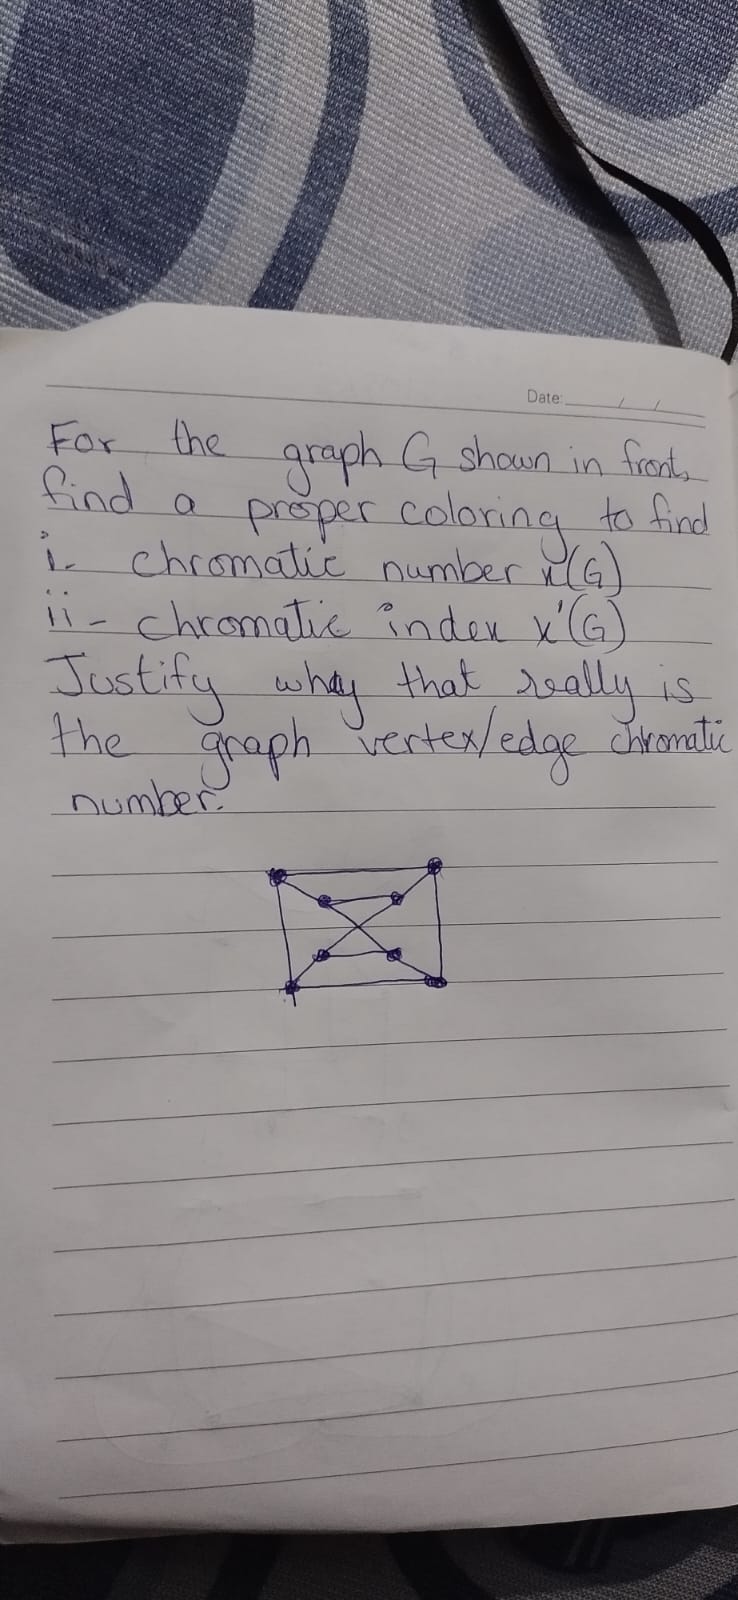 Date: / /
For the graph G shown in front,
find a proper coloring to find
i- chromatic number x(G)
ii- chromatic index x'(G)
Justify why that really is
the graph vertex/edge chromatic
number.